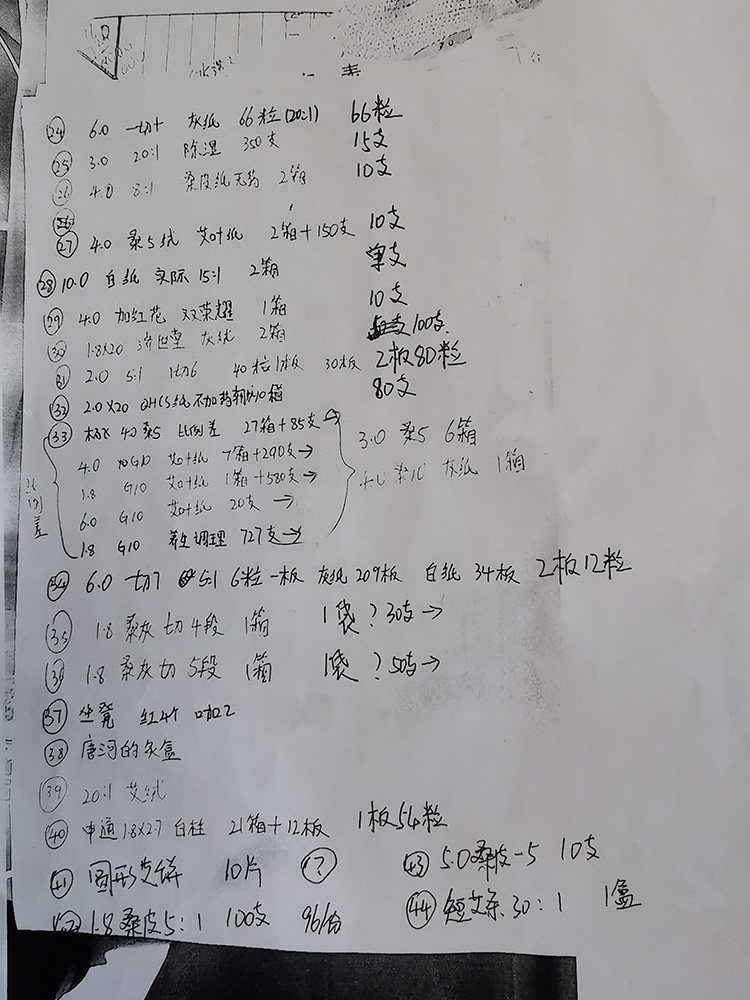 ㉔ 6.0 一切十 灰纸 66粒(20:1) 66粒
㉕ 3.0 20:1 除湿 350支 15支
㉖ 4.0 8:1 桑皮纸无药 2箱 10支
㉗ 4.0 桑5绒 艾叶纸 2箱+150支 10支
㉘ 10.0 白纸 实际15:1 2箱 单支
㉙ 4.0 加红花 双荣耀 1箱 10支
㉚ 1.8×20 济世堂 灰绒 2箱 100支
㉛ 2.0 5:1 1切6 40粒1板 30板 2板80粒
㉜ 2.0×20 纸不加药 箱 80支
㉝ 4.0 桑5 比例差 27箱+85支→
4.0 G10 艾叶纸 7箱+290支→
1.8 G10 艾叶纸 1箱+580支→
6.0 G10 艾叶纸 20支→
1.8 G10 养生调理 727支→
比例差
3.0 桑5 6箱
4.0 桑10 灰纸 1箱
㉞ 6.0 一切7 5:1 6粒一板 灰纸209板 白纸34板 2板12粒
㉟ 1.8 桑灰 切4段 1箱 1袋?30支→
㊱ 1.8 桑灰切 5段 1箱 1袋?50支→
㊲ 坐凳 红4个 咖2
㊳ 唐河的灸盒
㊴ 20:1 艾绒
㊵ 申通 1.8×2.7 白柱 21箱+12板 1板54粒
㊶ 圆形艾饼 10片 ?
㊸ 5.0桑皮-5 10支
㊷ 1.8桑皮5:1 100支 96/份
㊹ 短艾条.30:1 1盒